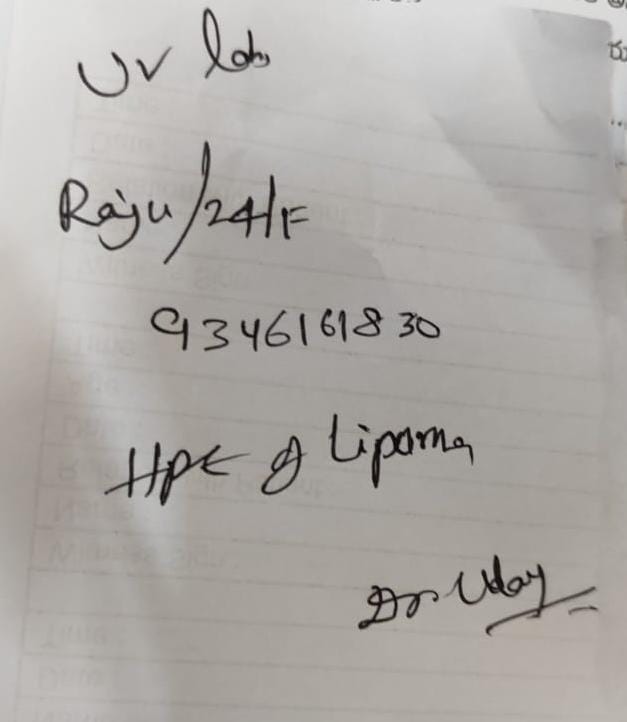 UV lab
Raju/24/F
9346161830
HPE of Lipoma
Dr. Uday